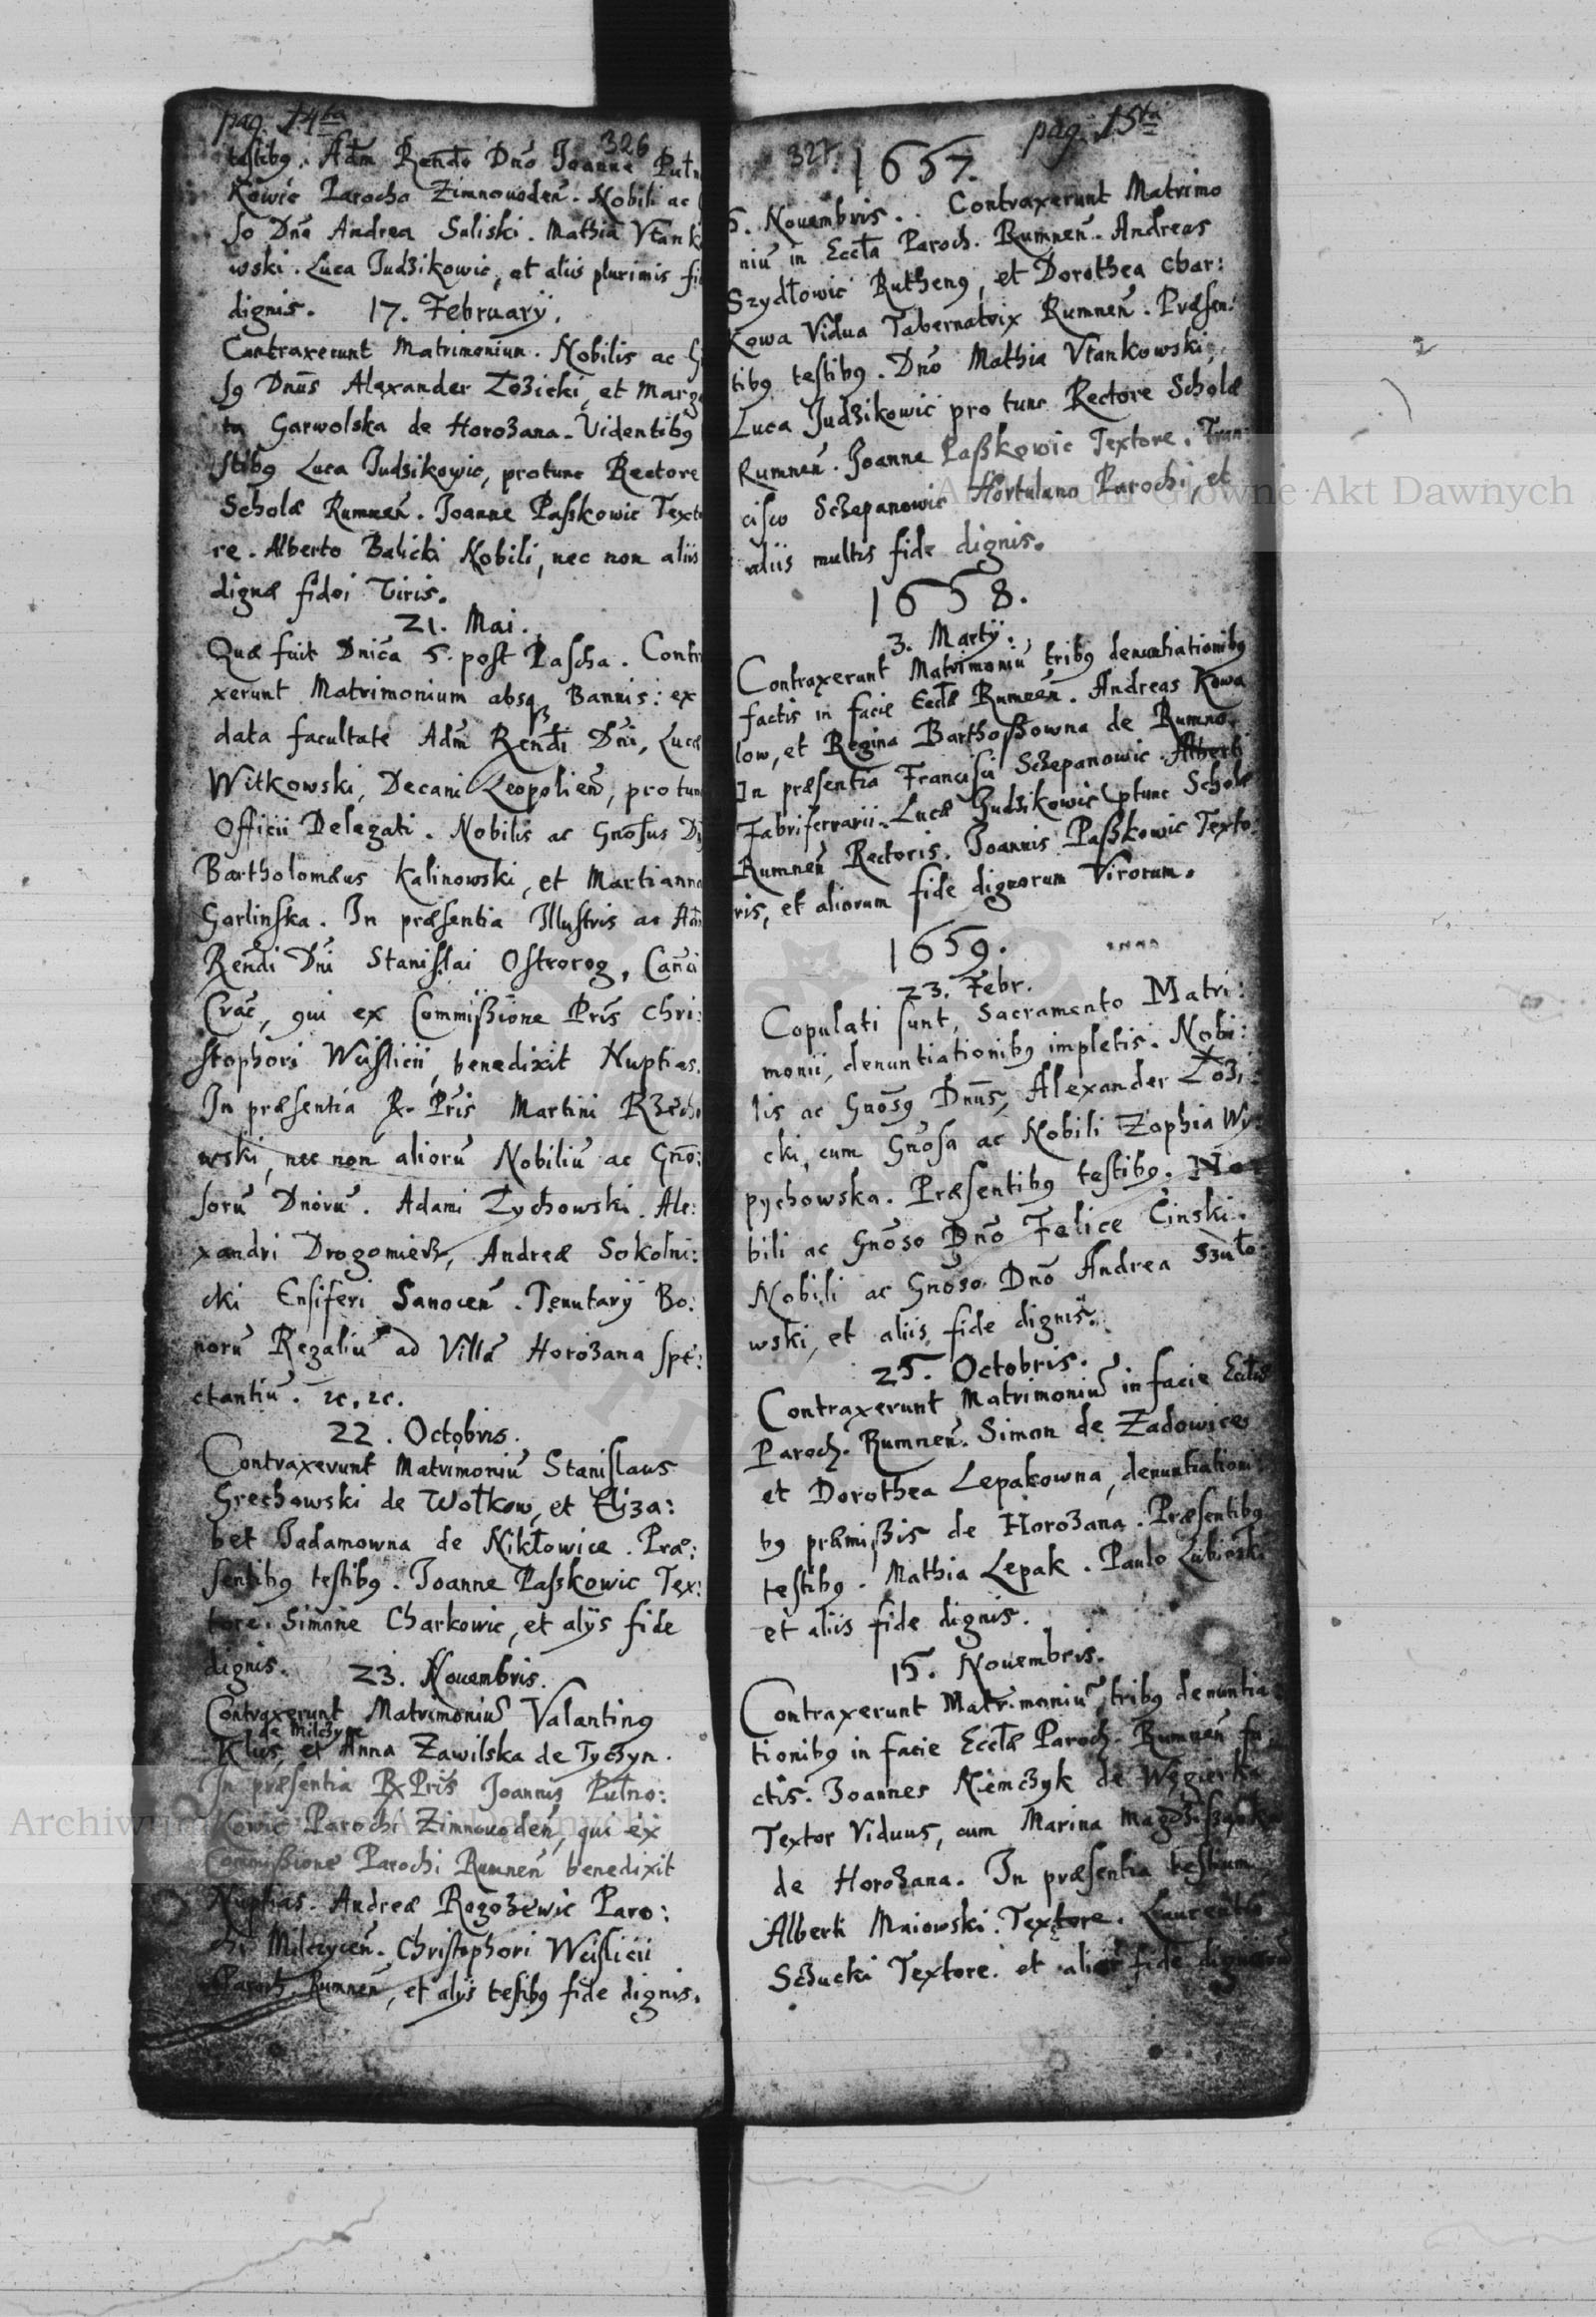 pag. 14ta
326
testibq. Adm Rendo Dno Joanne Putn
Kowic Parocho Zimnouoden. Nobili ac
so Dno Andrea Suliski. Mathia Vtank
wski. Luca Judzikowic, et aliis plurimis fi
dignis. 17. Februarÿ.
Contraxerunt Matrimonium. Nobilis ac G
sq Dnus Alexander Łozicki, et Marga
ta Garwolska de Horozana. Videntibq
stibq Luca Judzikowic, protunc Rectore
Scholæ Rumnen. Joanne Passkowic Texto
re. Alberto Balicki Nobili, nec non aliis
dignæ fidei Viris.
21. Mai.
Quæ fuit Dnica 5. post Pascha. Contra
xerunt Matrimonium absq3 Bannis: ex
data facultate Adm Rendi Dni, Lucæ
Witkowski, Decani Leopolien, pro tunc
Officii Delegati. Nobilis ac Gnosus D
Bartholomæus Kalinowski, et Martianna
Garlinska. In præsentia Illustris ac Adm
Rendi Dni Stanislai Ostrorog, Canci
Crac, qui ex Commißione Pris Chri:
stophori Weislicii, benedixit Nuptias.
In præsentia R. Pris Martini Rzecho
wski, nec non alioru Nobiliu ac Gno:
soru Dnoru. Adami Zychowski. Ale:
xandri Drogomierz, Andreæ Sokolni:
cki Ensiferi Sanocen. Tenutarÿ Bo:
noru Regaliu ad Villa Horozana spe:
ctantiu. 2c. 2c.
22. Octobris.
Contraxerunt Matrimoniu Stanislaus
Grechowski de Wołkow, et Eliza:
bet Jadamowna de Nikłowice. Præ:
sentibq testibq. Joanne Passkowic Tex:
tore. Simone Charkowic, et alÿs fide
dignis. 23. Nouembris.
Contraxerunt Matrimoniu Valantinq
de Milczyce
Klus, et Anna Zawilska de Tyczyn.
In præsentia R Pris Joannis Putno:
Kowic Parochi Zimnouoden, qui ex
Commißione Parochi Rumnen benedixit
Nuptias. Andreæ Rogozewic Paro:
chi Milczycen. Christophori Weislicii
Paroch. Rumnen, et alÿs testibq fide dignis.
327.
pag. 15ta
1657.
6. Nouembris. Contraxerunt Matrimo
niu in Eccla Paroch. Rumnen. Andreas
Szydłowic Ruthenq, et Dorothea Char:
kowa Vidua Tabernatrix Rumnen. Præsen:
tibq testibq. Dno Mathia Vtankowski,
Luca Judzikowic pro tunc Rectore Scholæ
Rumnen. Joanne Paßkowic Textore. Fran:
cisco Sczepanowic Hortulano Parochi, et
aliis multis fide dignis.
1658.
3. Martÿ.
Contraxerunt Matrimoniu tribq denuntiationibq
factis in facie Eccle Rumnen. Andreas Kowa
low, et Regina Barthoßowna de Rumno.
In præsentia Francisci Sczepanowic. Alberti
Fabriferrarii. Lucæ Judzikowic ptunc Scholæ
Rumnen Rectoris. Joannis Paßkowic Texto:
ris, et aliorum fide dignorum Virorum.
1659.
23. Febr.
Copulati sunt, Sacramento Matri:
monii, denuntiationibq impletis. Nobi:
lis ac Gnosq Dnus, Alexander Łozi
cki, cum Gnosa ac Nobili Zophia Wy
pychowska. Præsentibq testibq. No
bili ac Gnoso Dno Felice Cinski.
Nobili ac Gnoso Dno Andrea Szuło:
wski, et aliis fide dignis.
25. Octobris.
Contraxerunt Matrimoniu in facie Eccle
Paroch. Rumnen. Simon de Zadowices
et Dorothea Lepakowna, denuntiationi
bq præmißis de Horozana. Præsentibq
testibq. Mathia Lepak. Paulo Lubinski
et aliis fide dignis.
15. Nouembris.
Contraxerunt Matrimoniu, tribq denuntia
tionibq in facie Eccle Paroch. Rumnen fa
ctis. Joannes Niemczyk de Węgierka
Textor Viduus, cum Marina
de Horozana. In præsentia testium
Alberti Maiowski. Textore. Laurentio
Sczucki Textore. et alior fide dignoru
Archiwum Główne Akt Dawnych
Archiwum Główne Akt Dawnych